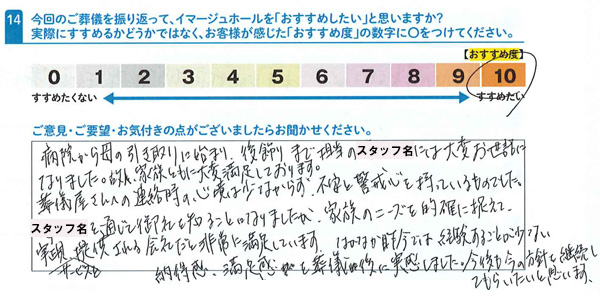 14 今回のご葬儀を振り返って、イマージュホールを「おすすめしたい」と思いますか?
実際にすすめるかどうかではなく、お客様が感じた「おすすめ度」の数字に〇をつけてください。
【おすすめ度】
0 1 2 3 4 5 6 7 8 9 10
すすめたくない すすめたい
ご意見・ご要望・お気付きの点がございましたらお聞かせください。
病院から母の引き取りに始まり、後飾りまで担当のスタッフ名には大変お世話に
なりました。故人、家族ともに大変満足しております。
葬儀屋さんへの連絡時の心境は少なからず、不安と警戒心を持っているものでした。
スタッフ名を通じて御社を知ることになりましたが、家族のニーズを的確に捉えて、
実現、提供される会社だと非常に満足しています。はなかなか昨今では経験することが少ない
サービスと
納得感、満足感を葬儀後に実感しました。今後も今の方針を継続し
てもらいたいと思います。